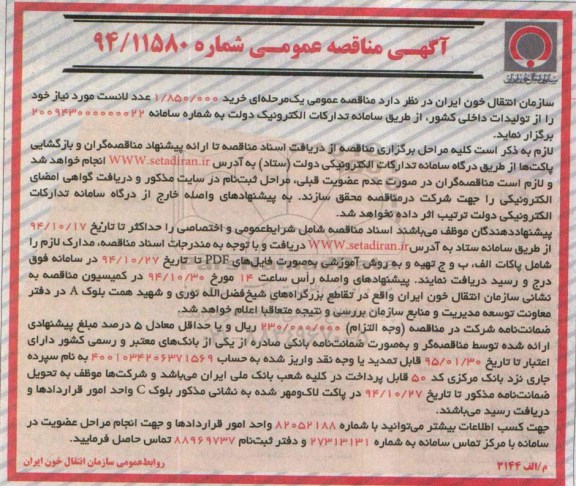 آگهـی مناقصه عمومـی شماره ۹۴/۱۱۵۸۰
سازمان انتقال خون ایران در نظر دارد مناقصه عمومی یک‌مرحله‌ای خرید ۱/۸۵۰/۰۰۰ عدد لانست مورد نیاز خود
را از تولیدات داخلی کشور، از طریق سامانه تدارکات الکترونیک دولت به شماره سامانه ۲۰۰۹۴۳۰۰۰۰۰۰۲۲
برگزار نماید.
لازم به ذکر است کلیه مراحل برگزاری مناقصه از دریافت اسناد مناقصه تا ارائه پیشنهاد مناقصه‌گران و بازگشایی
پاکت‌ها از طریق درگاه سامانه تدارکات الکترونیکی دولت (ستاد) به آدرس WWW.setadiran.ir انجام خواهد شد
و لازم است مناقصه‌گران در صورت عدم عضویت قبلی، مراحل ثبت‌نام در سایت مذکور و دریافت گواهی امضای
الکترونیکی را جهت شرکت درمناقصه محقق سازند. به پیشنهادهای واصله خارج از درگاه سامانه تدارکات
الکترونیکی دولت ترتیب اثر داده نخواهد شد.
پیشنهاددهندگان موظف می‌باشند اسناد مناقصه شامل شرایط‌عمومی و اختصاصی را حداکثر تا تاریخ ۹۴/۱۰/۱۷
از طریق سامانه ستاد به آدرس WWW.setadiran.ir دریافت و با توجه به مندرجات اسناد مناقصه، مدارک لازم را
شامل پاکات الف، ب و ج تهیه و به روش آموزشی به‌صورت فایل‌های PDF تا تاریخ ۹۴/۱۰/۲۷ در سامانه فوق
درج و رسید دریافت نمایند. پیشنهادهای واصله رأس ساعت ۱۴ مورخ ۹۴/۱۰/۳۰ در کمیسیون مناقصه به
نشانی سازمان انتقال خون ایران واقع در تقاطع بزرگراه‌های شیخ‌فضل‌الله نوری و شهید همت بلوک A در دفتر
معاونت توسعه مدیریت و منابع سازمان بررسی و نتیجه متعاقبا اعلام خواهد شد.
ضمانت‌نامه شرکت در مناقصه (وجه التزام) ۲۳۰/۰۰۰/۰۰۰ ریال و یا حداقل معادل ۵ درصد مبلغ پیشنهادی
ارائه شده توسط مناقصه‌گر و به‌صورت ضمانت‌نامه بانکی صادره از یکی از بانک‌های معتبر و رسمی کشور دارای
اعتبار تا تاریخ ۹۵/۰۱/۳۰ قابل تمدید یا وجه نقد واریز شده به حساب ۴۰۰۱۰۳۴۲۰۶۳۷۱۵۶۹ به نام سپرده
جاری نزد بانک مرکزی کد ۵۰ قابل پرداخت در کلیه شعب بانک ملی ایران می‌باشد و شرکت‌ها موظف به تحویل
ضمانت‌نامه مذکور تا تاریخ ۹۴/۱۰/۲۷ در پاکت لاک‌ومهر شده به نشانی مذکور بلوک C واحد امور قراردادها و
دریافت رسید می‌باشند.
جهت کسب اطلاعات بیشتر می‌توانید با شماره ۸۲۰۵۲۱۸۸ واحد امور قراردادها و جهت انجام مراحل عضویت در
سامانه با مرکز تماس سامانه به شماره ۲۷۳۱۳۱۳۱ و دفتر ثبت‌نام ۸۸۹۶۹۷۳۷ تماس حاصل فرمایید.
م/الف ۳۱۴۴
روابط‌عمومی سازمان انتقال خون ایران